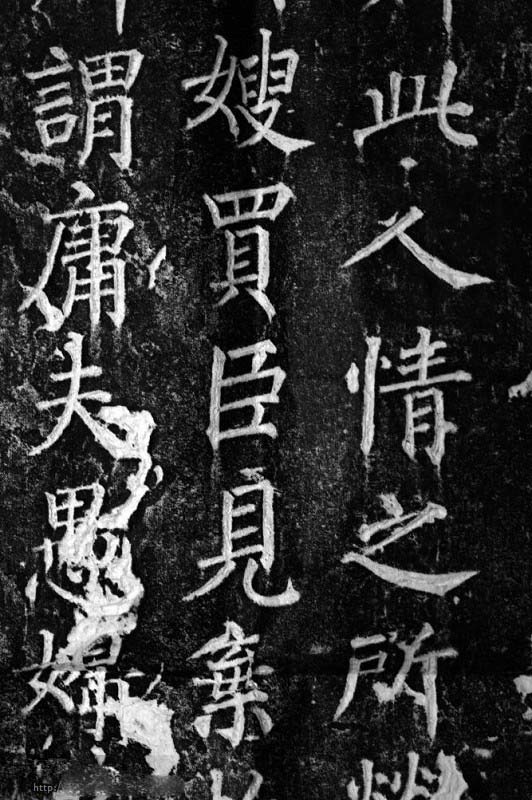 此人情之所榮
嫂買臣見棄
謂庸夫愚婦
http:/